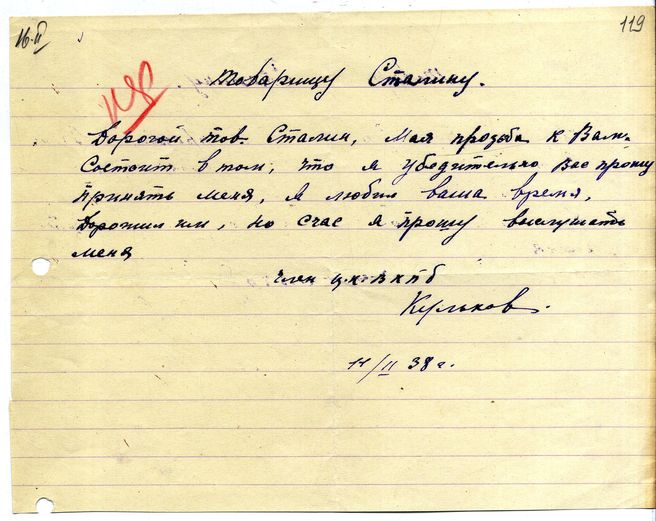 16-II
119
Товарищу Сталину.
Дорогой тов. Сталин, Моя прозьба к Вам.
Состоит в том, что я убодительно Вас прошу
принять меня, Я любил ваша время,
Дорожил им, но счас я прошу выслушать
меня
член цк ВКПб
Кульков.
11/II 38 г.